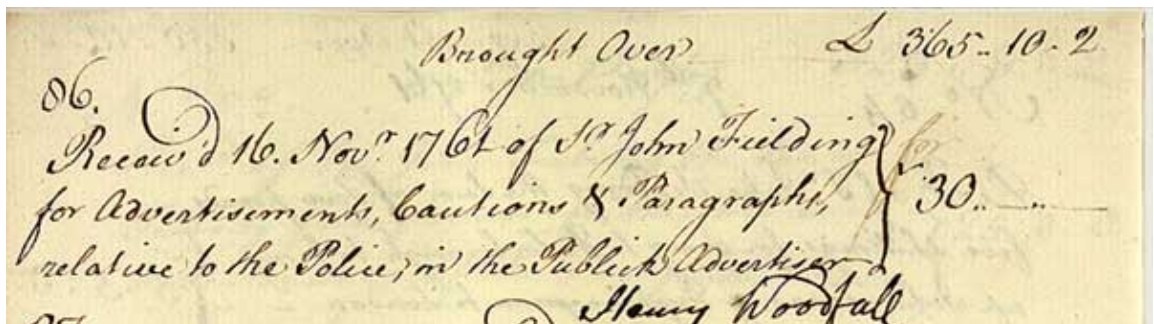 Brought Over £ 365.. 10 - 2
86.
Receiv'd 16. Novr. 1761 of Sr. John Fielding
for Advertisements, Cautions & Paragraphs, 30..—..—
relative to the Police, in the Publick Advertiser
Henry Woodfall